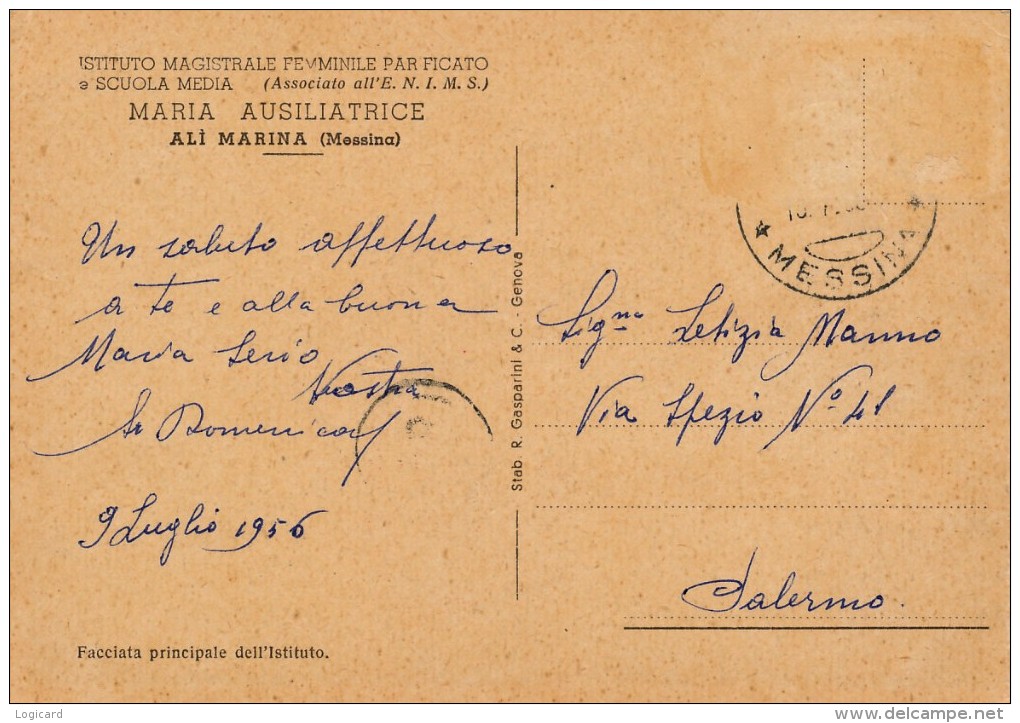 ISTITUTO MAGISTRALE FEMMINILE PARIFICATO
e SCUOLA MEDIA (Associato all'E. N. I. M. S.)
MARIA AUSILIATRICE
ALÌ MARINA (Messina)
Un saluto affettuoso
a te e alla buona
Maria Serio
Vostra
Sr Domenica
9 Luglio 1956
Facciata principale dell'Istituto.
Stab. R. Gasparini & C. - Genova
MESSINA
Signa Letizia Manno
Via Spezio No 41
Palermo
Logicard
delcampe.net